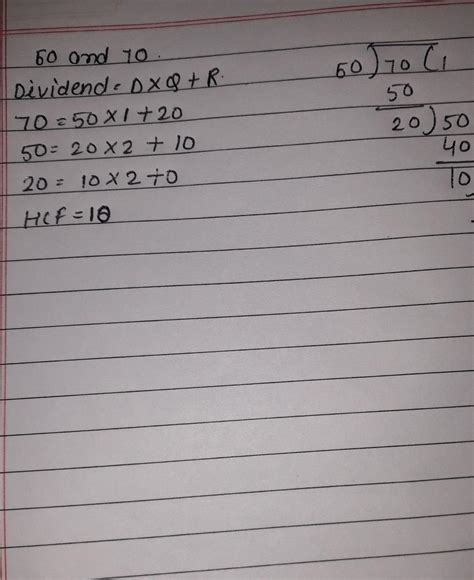 50 and 70.
Dividend = D×Q + R.
70 = 50 × 1 + 20
50 = 20 × 2 + 10
20 = 10 × 2 + 0
HCF = 10
50 ) 70 ( 1
50
20 ) 50
40
10